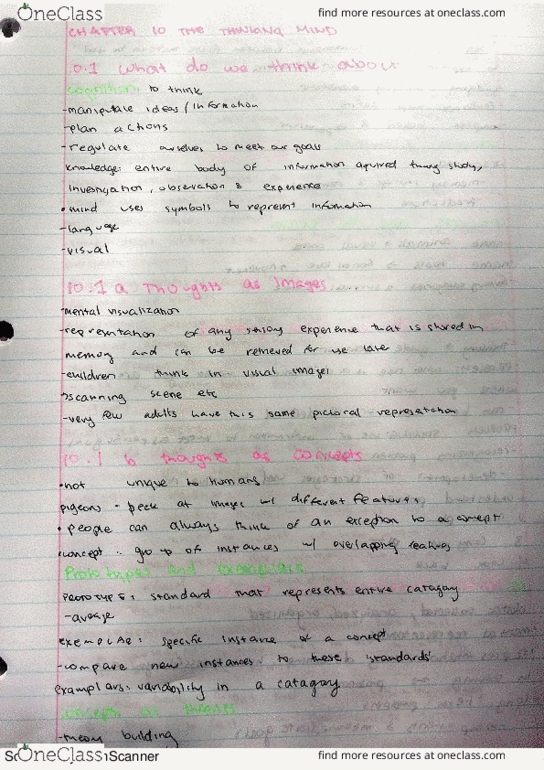 OneClass
find more resources at oneclass.com
CHAPTER 10 THE THINKING MIND
10.1 what do we think about
cognition: to think
-manipulate ideas/information
-plan actions
-regulate ourselves to meet our goals
knowledge: entire body of information aquired through study,
investigation, observation & experience
• mind uses symbols to represent information
-language
-visual
10.1 a Thoughts as Images
-mental visualization
-representation of any sensory experience that is stored in
memory and can be retrieved for use later
-children think in visual images
scanning scene etc
-very few adults have this same pictorial representation
10.1 b thoughts as concepts
• not unique to humans
pigeons - peck at images w/ different features
• people can always think of an exception to a concept
concept: group of instances w/ overlapping features
Prototypes and Exemplars
PROTOTYPES: standard that represents entire catagory
-average
EXEMPLAR: specific instance of a concept
-compare new instances to these 'standards'
examplars: variability in a catagory
concepts as theories
-theory building
OneClass
Scanner
find more resources at oneclass.com